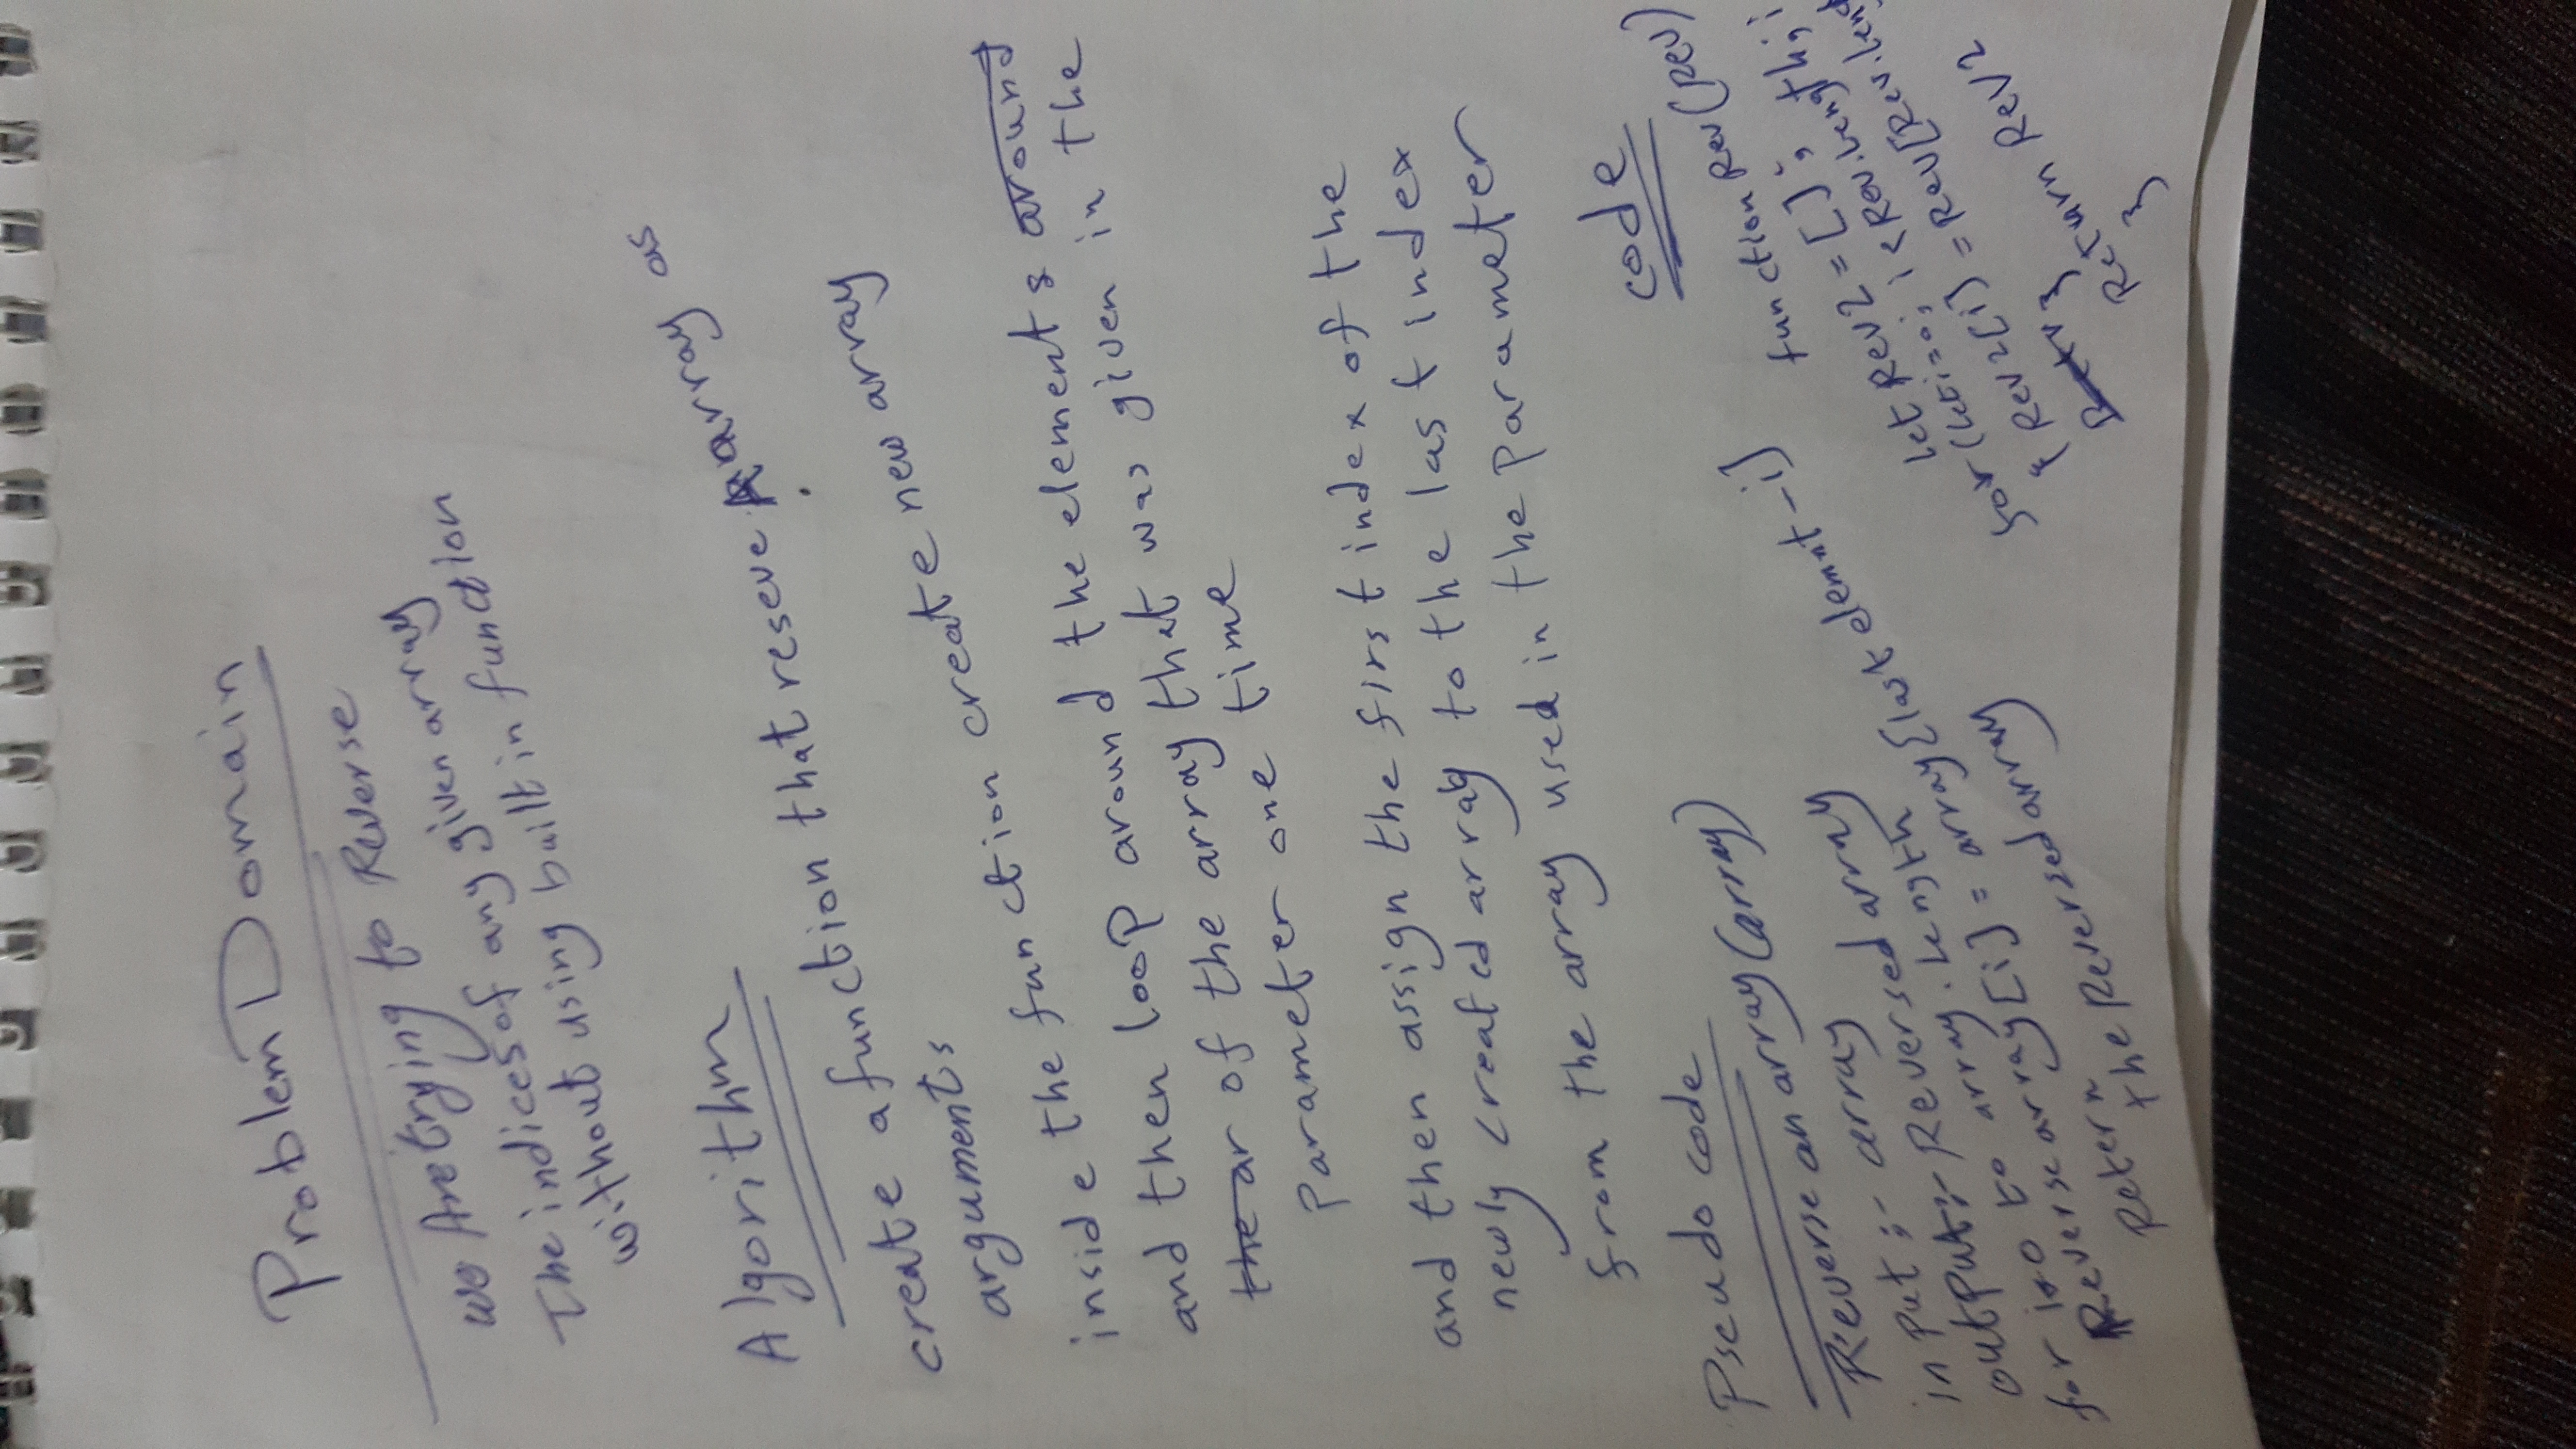 Problem Domain
we Are trying to Reverse
The indices of any given array
without using built in function
Algorithm
create a function that reseve array as
arguments
inside the function create new array
and then loop around the elements around
the ar of the array that was given in the
Parameter one time
and then assign the first index of the
newly created array to the last index
from the array used in the parameter
Pseudo code
Reverse an array (array)
input :- array
output :- Reversed array
for i=0 to array.length
Reverse array [i] = array [last elemnt - i]
Retern
the Reversed array
code
function Rev (Rev)
let Rev2 = [];
for (let i=0; i < Rev.length; i
{ Rev2[i] = Rev[Rev.len
}
Return Rev2
}